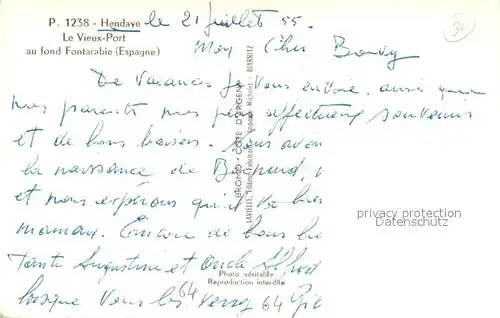 P. 1238 - Hendaye le 21 juillet 55.
Le Vieux-Port
au fond Fontarabie (Espagne)
Mon Cher
De Vacances Je Vous envoie, ainsi que
mes parents mes plus affectueux souvenirs
et de bons baisers. Nous avons
la naissance de
et nous espérons qu'il va bien
maman. Encore de bons
Tante Augustine et Oncle
Vous les verrez
BROMO - CÔTE D'ARGENT
BIARRITZ
Photo véritable
Reproduction interdite
64
64
privacy protection
Datenschutz